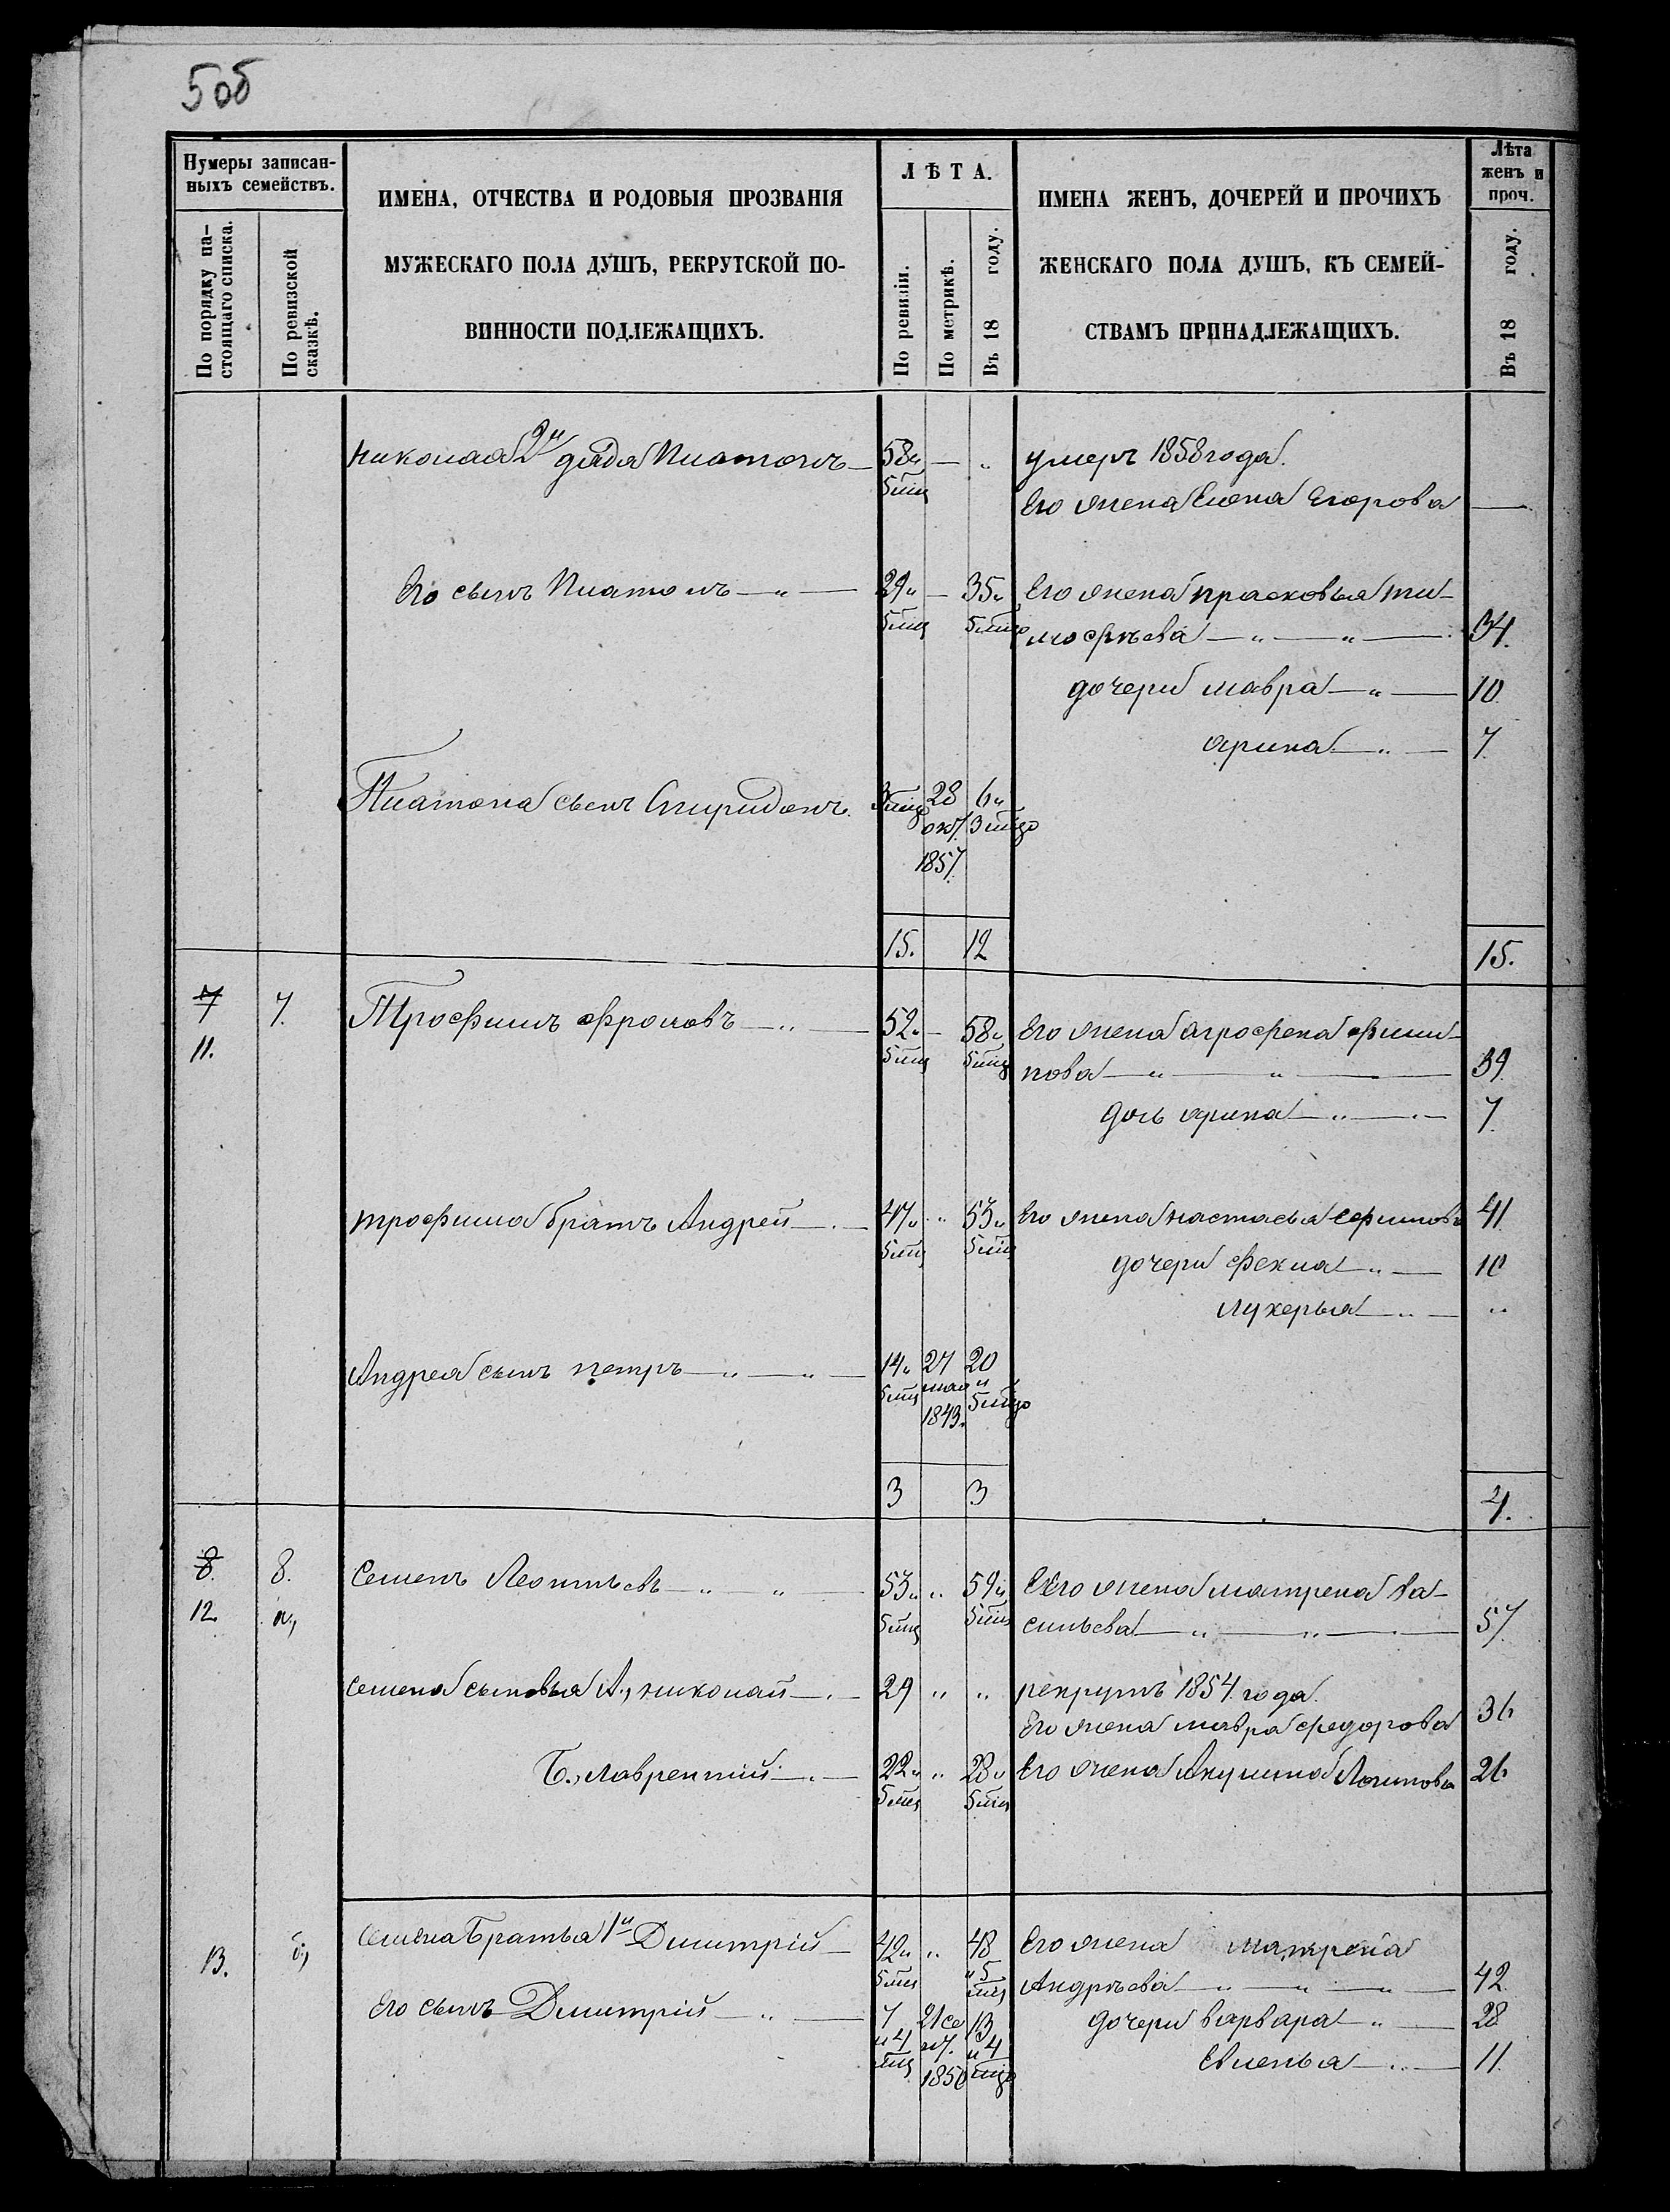 5об
Нумеры записан-
ныхъ семействъ.
По порядку на-
стоящаго списка.
По ревизской
сказкѣ.
ИМЕНА, ОТЧЕСТВА И РОДОВЫЯ ПРОЗВАНІЯ
МУЖЕСКАГО ПОЛА ДУШЪ, РЕКРУТСКОЙ ПО-
ВИННОСТИ ПОДЛЕЖАЩИХЪ.
ЛѢТА.
По ревизіи.
По метрикѣ.
Въ 18 году.
ИМЕНА ЖЕНЪ, ДОЧЕРЕЙ И ПРОЧИХЪ
ЖЕНСКАГО ПОЛА ДУШЪ, КЪ СЕМЕЙ-
СТВАМЪ ПРИНАДЛЕЖАЩИХЪ.
Лѣта
женъ и
проч.
Въ 18 году.
Николая 2й дядя Платонъ — 58 „ — „ умеръ 1858 года.
5 мц
Его жена Елена Егорова —
Его сынъ Платонъ — „ — 29 „ — 35 „ Его жена Прасковья Ти-
5 мц 5 мцо мофѣева — „ — „ — 34.
дочери Мавра — „ — 10
Арина — „ — 7.
Платона сынъ Спиридонъ. 3 мцо 28 6 „
окт. 3 мцо
1857
15. 12 15.
7 7. Трофимъ Фроловъ — „ — 52 „ — 58 „ Его жена Аграфена Фили-
11. 5 мц 5 мц пова — „ — „ — 39.
дочь Арина — „ — 7.
Трофима братъ Андрей — 47 „ „ 53 „ Его жена Настасья Ефимова 41
5 мц 5 мц
дочери Фекла — „ — 10
Лукерья — „ — „
Андрея сынъ Петръ — „ — „ — 14 „ 27 20
5 мц мая и 5 мцо
1843.
3 3 4.
8. 8. Семенъ Леонтьевъ — „ — „ 53 „ „ 59 „ Его жена Матрена Ва-
12. а, 5 мц 5 мц сильева — „ — „ — 57
Семена сыновья А., Николай — 29 „ „ рекрутъ 1854 года.
Его жена Мавра Федорова 36
Б., Лаврентий — „ — 22 „ „ 28 „ Его жена Акулина Логинова 26
5 мц 5 мц
Семена Братья 1й Дмитрій — 42 „ „ 48 Его жена Матрена
13. б, 5 мц и 5 мц Андрѣева — „ — „ — „ — 42
Его сынъ Дмитрій — „ — 7 21 се 13 дочери Варвара — „ — 28
и 4 нт. и 4
мц 1850 мцо Евленья — „ — 11.